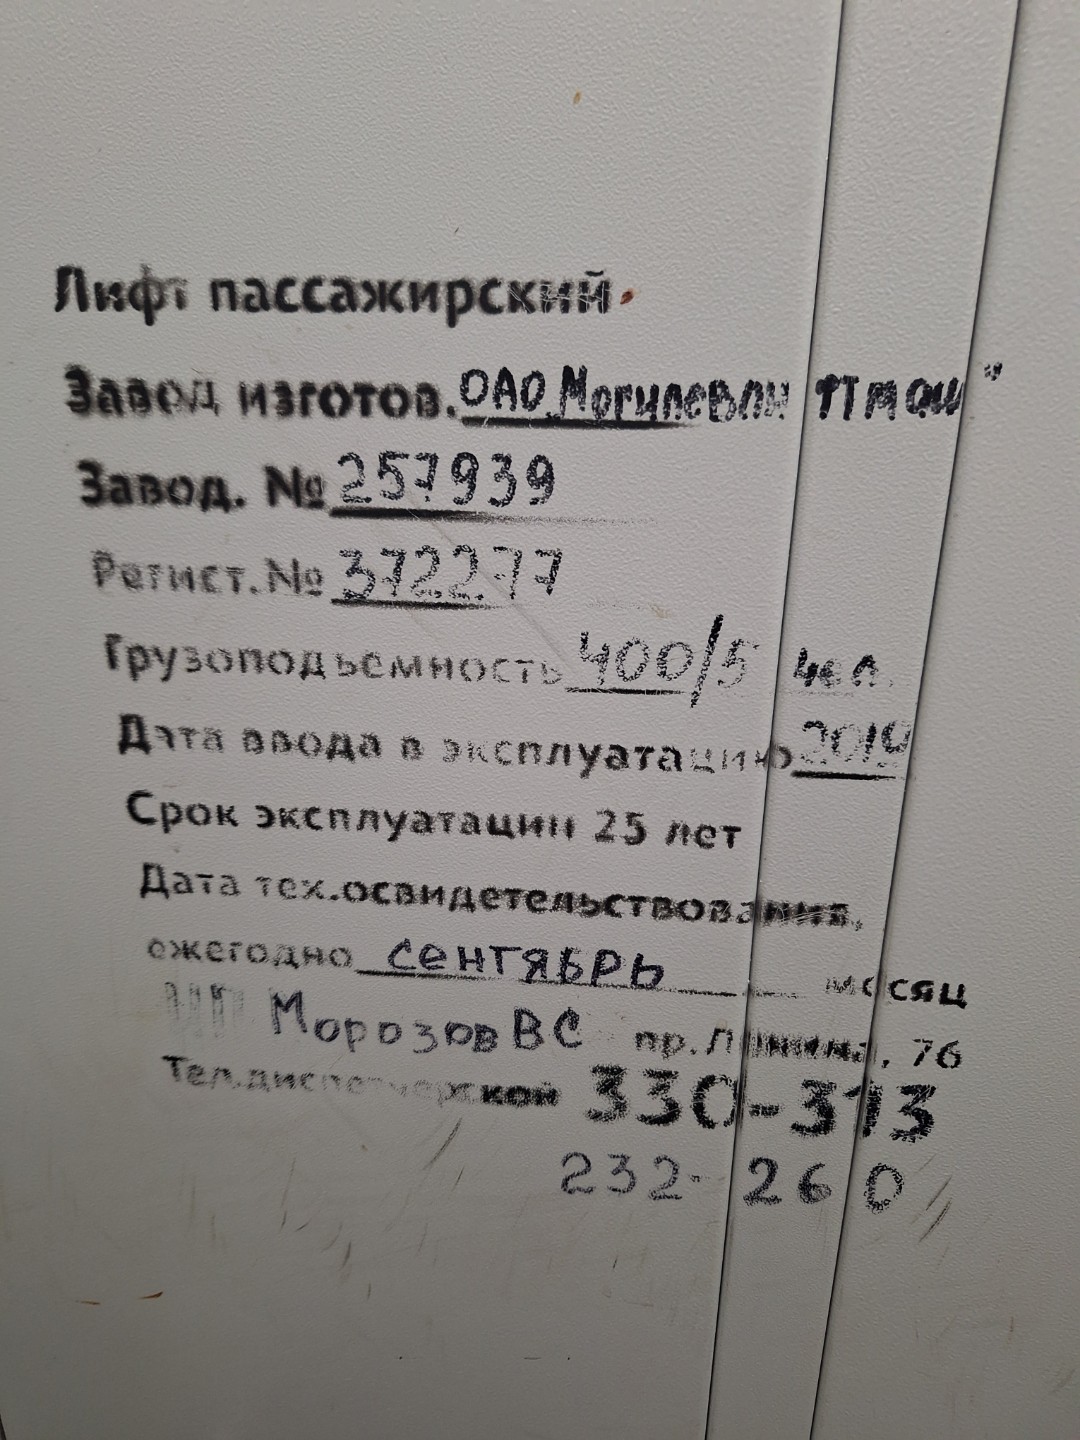 Лифт пассажирский
Завод изготов. ОАО Могилевлифтмаш"
Завод. № 257939
Регист. № 372277
Грузоподъемность 400/5 чел.
Дата ввода в эксплуатацию
Срок эксплуатации 25 лет
Дата тех.освидетельствования,
ежегодно сентябрь месяц
ИП Морозов ВС пр. Ленина, 76
Тел.диспетчерской 330-313
232-260